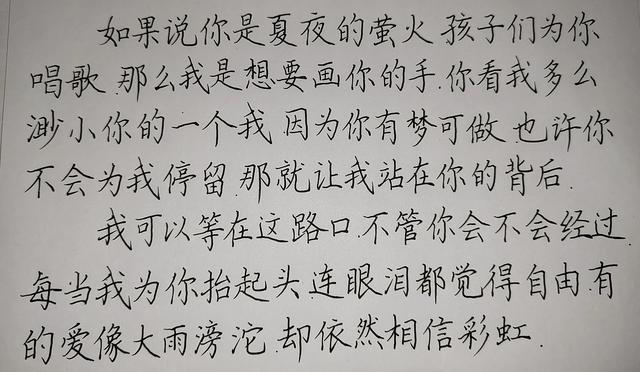 如果说你是夏夜的萤火 孩子们为你
唱歌 那么我是想要画你的手.你看我多么
渺小你的一个我 因为你有梦可做 也许你
不会为我停留.那就让我站在你的背后.
我可以等在这路口.不管你会不会经过.
每当我为你抬起头.连眼泪都觉得自由.有
的爱像大雨滂沱.却依然相信彩虹.